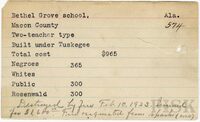 Bethel Grove school, Ala.
Macon County 574
Two-teacher type
Built under Tuskegee
Total cost $965
Negroes 365
Whites
Public 300
Rosenwald 300
Destroyed by fire Feb. 10, 1923.
for $1,600. Fire